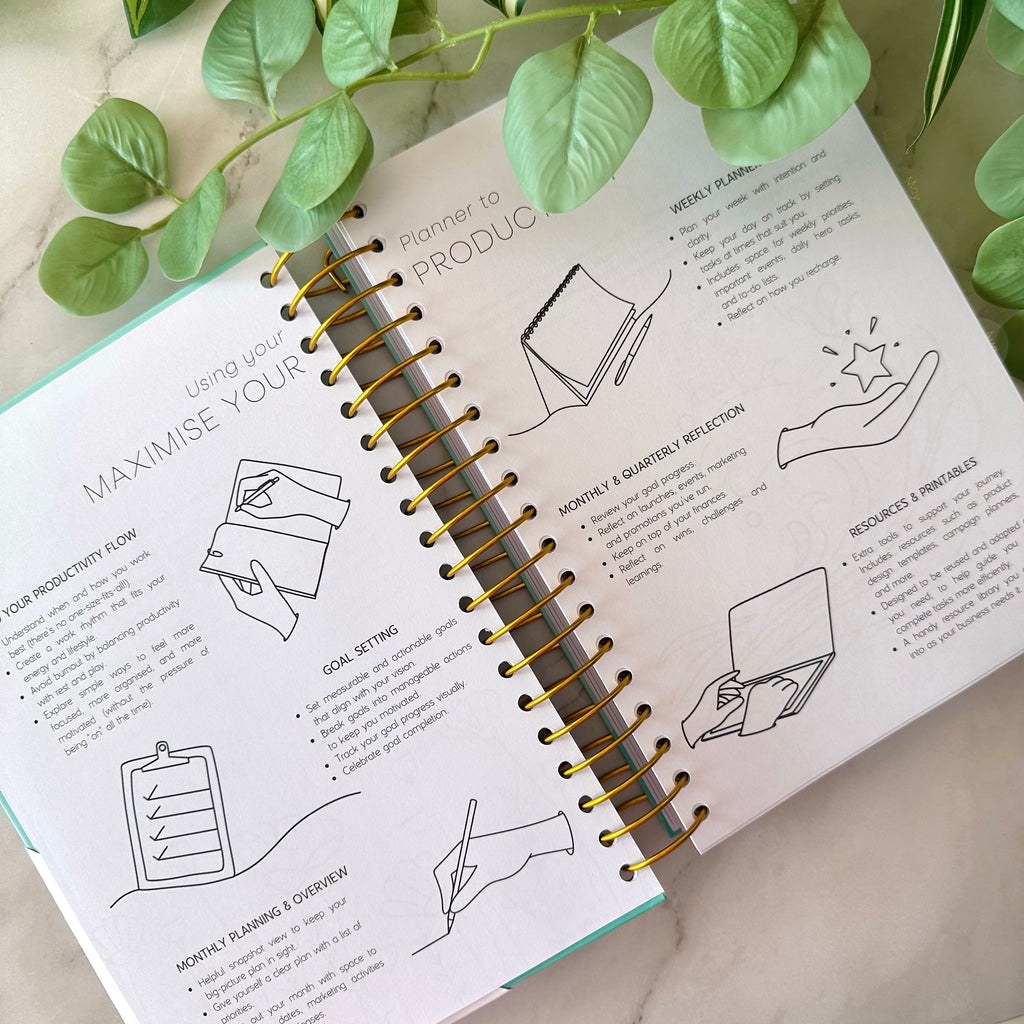 Using your
MAXIMISE YOUR
YOUR PRODUCTIVITY FLOW
Understand when and how you work
best (there's no one-size-fits-all!).
• Create a work rhythm that fits your
energy and lifestyle.
• Avoid burnout by balancing productivity
with rest and play.
• Explore simple ways to feel more
focused, more organised, and more
motivated (without the pressure of
being "on" all the time).
GOAL SETTING
• Set measurable and actionable goals
that align with your vision.
• Break goals into manageable actions
to keep you motivated.
• Track your goal progress visually.
• Celebrate goal completion.
MONTHLY PLANNING & OVERVIEW
• Helpful snapshot view to keep your
big-picture plan in sight.
• Give yourself a clear plan with a list of
priorities.
out your month with space to
dates, marketing activities
Planner to
PRODUCT
WEEKLY PLANNER
• Plan your week with intention and
clarity.
• Keep your day on track by setting
tasks at times that suit you.
• Includes space for weekly priorities,
important events, daily hero tasks,
and to-do lists.
• Reflect on how you recharge.
MONTHLY & QUARTERLY REFLECTION
• Review your goal progress.
• Reflect on launches, events, marketing
and promotions you've run.
• Keep on top of your finances.
• Reflect on wins, challenges and
learnings.
RESOURCES & PRINTABLES
• Extra tools to support your journey.
• Includes resources such as product
design templates, campaign planners,
and more.
• Designed to be reused and adapted
you need, to help guide you
complete tasks more efficiently.
• A handy resource library you
into as your business needs it
May